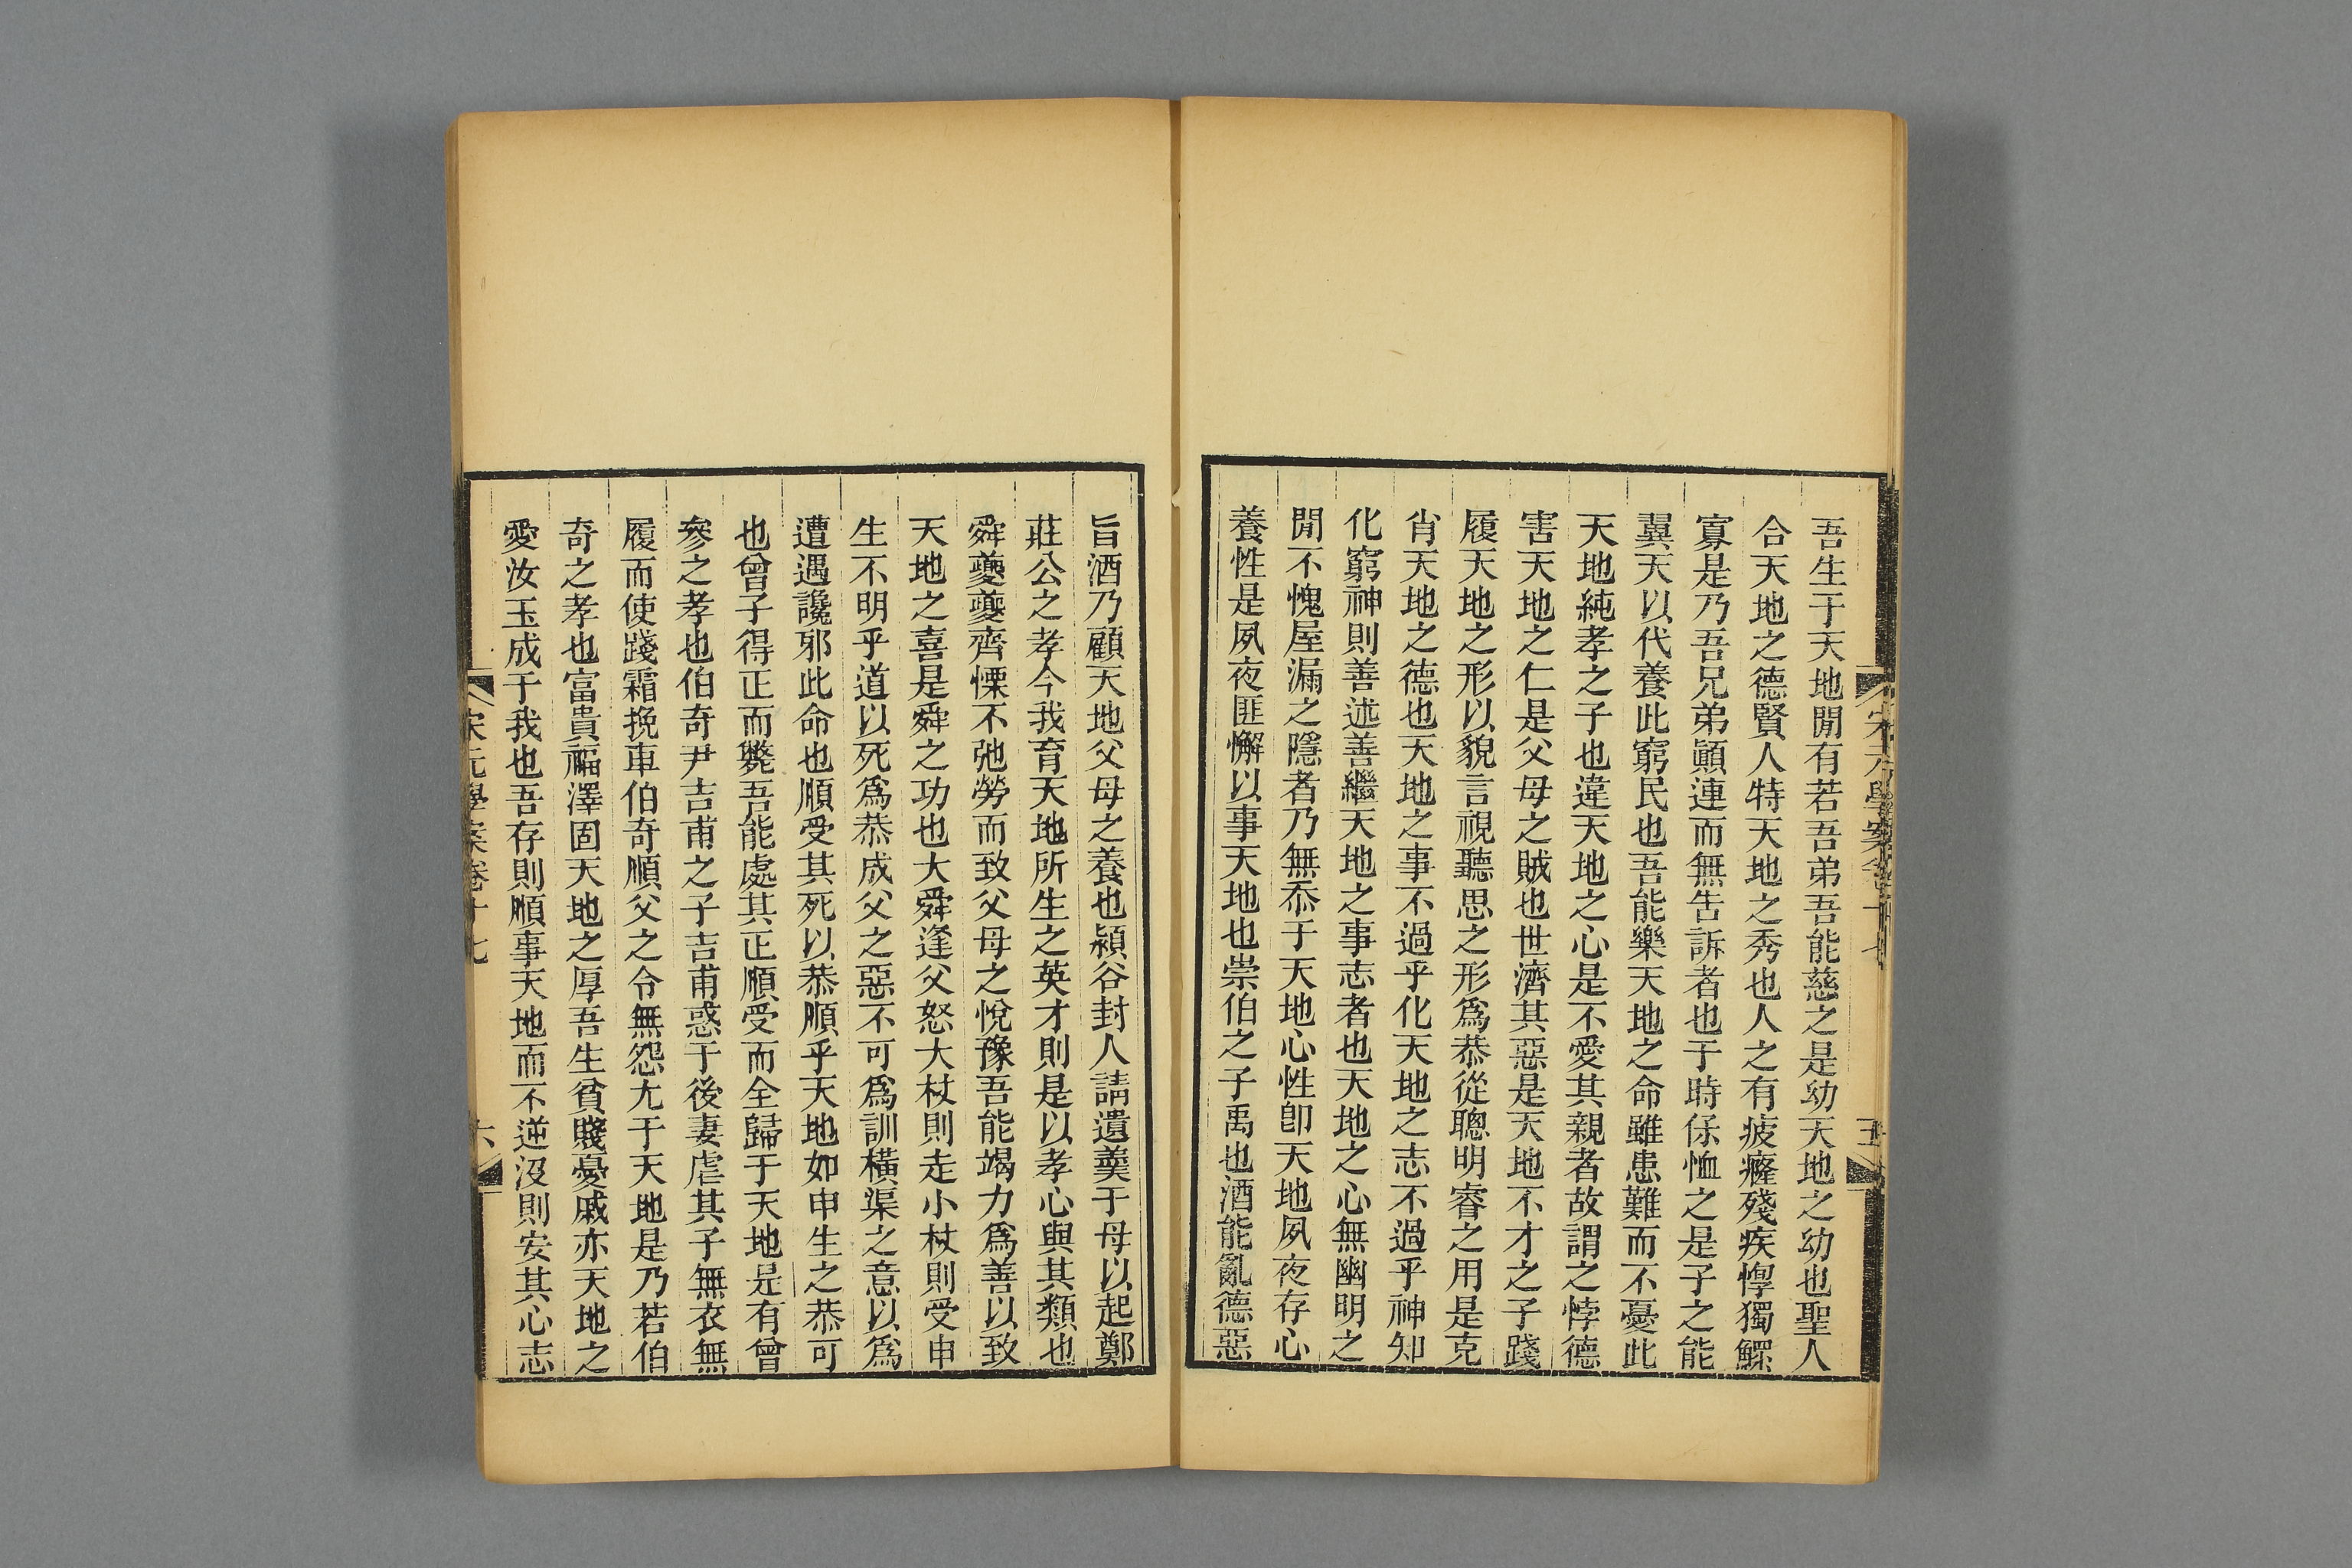 吾生于天地閒有若吾弟吾能慈之是幼天地之幼也聖人
合天地之德賢人特天地之秀也人之有疲癃殘疾惸獨鰥
寡是乃吾兄弟顚連而無告訴者也于時保恤之是子之能
翼天以代養此窮民也吾能樂天地之命雖患難而不憂此
天地純孝之子也違天地之心是不愛其親者故謂之悖德
害天地之仁是父母之賊也世濟其惡是天地不才之子踐
履天地之形以貌言視聽思之形爲恭從聰明睿之用是克
肖天地之德也天地之事不過乎化天地之志不過乎神知
化窮神則善述善繼天地之事志者也天地之心無幽明之
閒不愧屋漏之隱者乃無忝于天地心性卽天地夙夜存心
養性是夙夜匪懈以事天地也崇伯之子禹也酒能亂德惡
宋元學案卷十七
五
旨酒乃顧天地父母之養也潁谷封人請遺羹于母以起鄭
莊公之孝今我育天地所生之英才則是以孝心與其類也
舜夔夔齊慄不弛勞而致父母之悅豫吾能竭力爲善以致
天地之喜是舜之功也大舜逢父怒大杖則走小杖則受申
生不明乎道以死爲恭成父之惡不可爲訓橫渠之意以爲
遭遇讒邪此命也順受其死以恭順乎天地如申生之恭可
也曾子得正而斃吾能處其正順受而全歸于天地是有曾
參之孝也伯奇尹吉甫之子吉甫惑于後妻虐其子無衣無
履而使踐霜挽車伯奇順父之令無怨尤于天地是乃若伯
奇之孝也富貴福澤固天地之厚吾生貧賤憂戚亦天地之
愛汝玉成于我也吾存則順事天地而不逆沒則安其心志
宋元學案卷十七
六